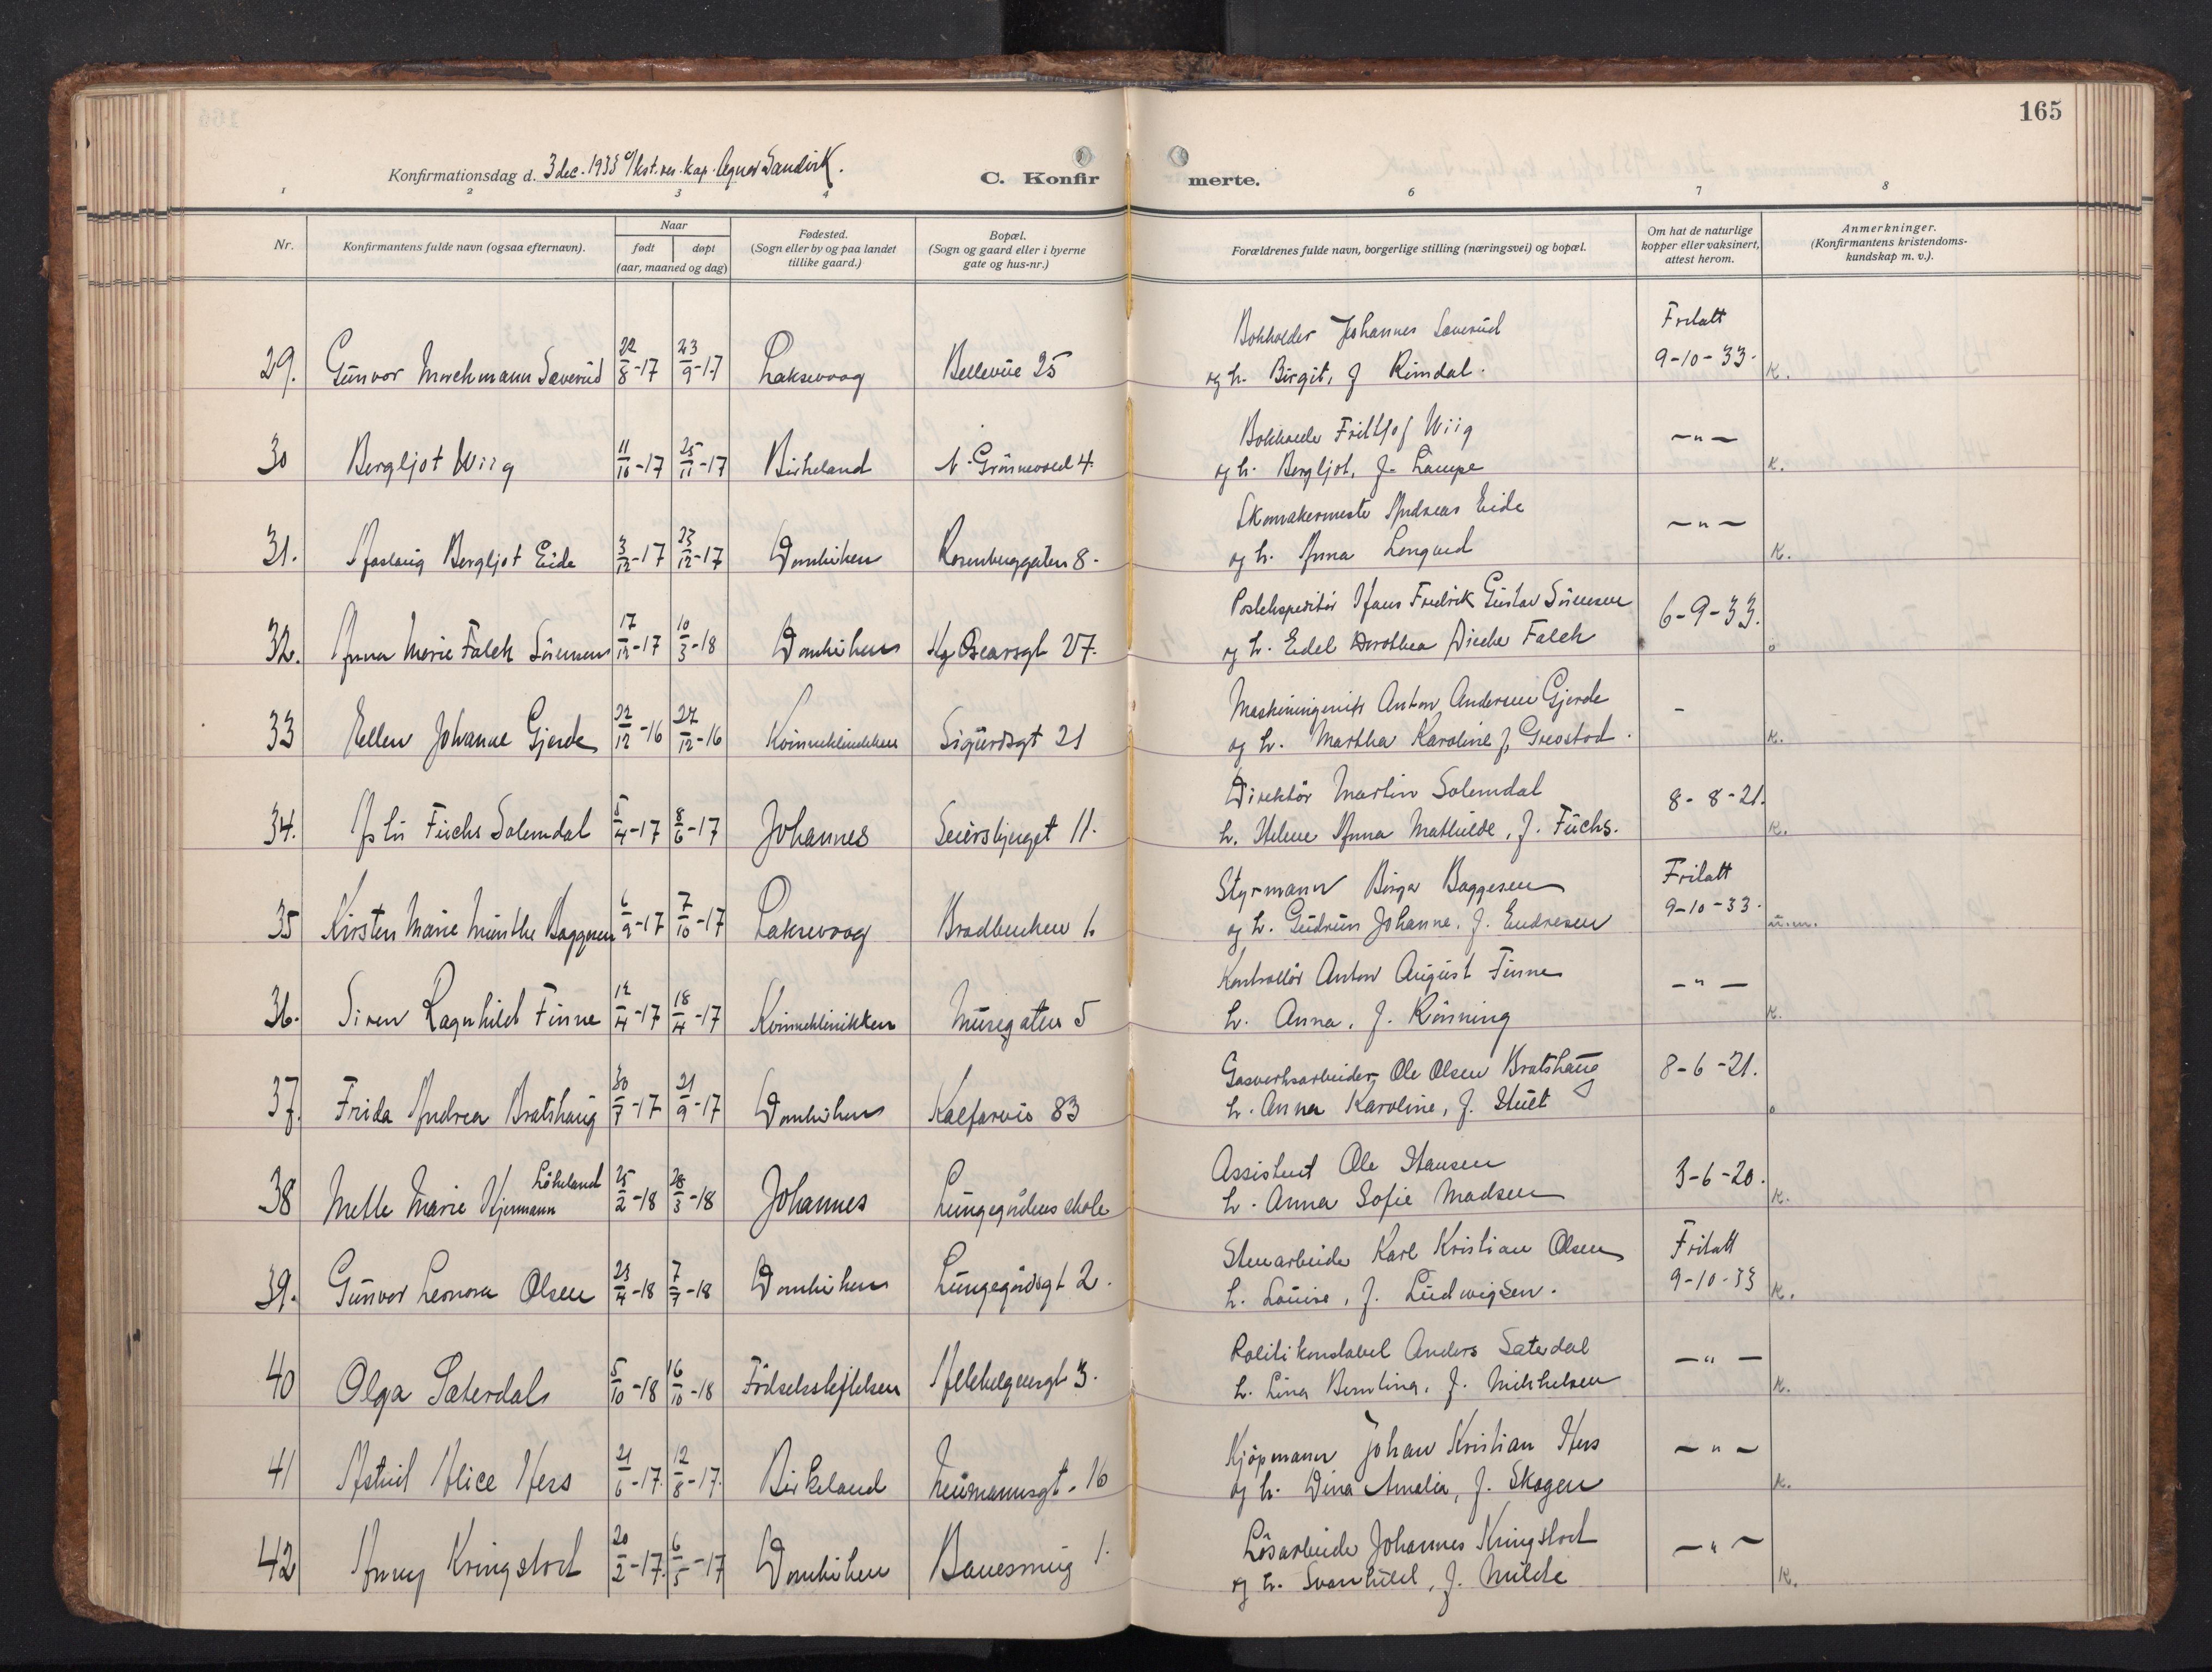 165
Konfirmationsdag d. 3 dec. 1933 v/ kst. res. kap. Agnar Sandvik.
C. Konfirmerte.
1 2 3 4 6 7 8
Nr.
Konfirmantens fulde navn (ogsaa efternavn).
Naar
født døpt
(aar, maaned og dag)
Fødested.
(Sogn eller by og paa landet
tillike gaard.)
Bopæl.
(Sogn og gaard eller i byerne
gate og hus-nr.)
Forældrenes fulde navn, borgerlige stilling (næringsvei) og bopæl.
Om hat de naturlige
kopper eller vaksinert,
attest herom.
Anmerkninger.
(Konfirmantens kristendoms-
kundskap m. v.).
Bokholder Johannes Sæverud Fritatt
29. Gunvor Sæverud 22/8-17 23/9-17 Laksevaag Bellevue 25 og h. Birgit, f. Rimdal. 9-10-33. K.
Bokholder Frithjof Wiig
30 Bergljot Wiig 11/10-17 25/11-17 Birkeland N. Grønnevold 4. og h. Bergljot, f. Lampe -"- K.
Skomakermester Andreas Eide
31. Aslaug Bergljot Eide 3/12-17 23/12-17 Domkirken Rosenberggaten 8. og h. Anna -"- K.
Postekspeditør Hans Fredrik Gustav Sörensen
32. Anna Marie Falch Sörensen 17/12-17 10/3-18 Domkirken Kg Oscarsgt 27. og h. Edel Dorothea Falch 6-9-33. o
Maskiningeniør Anton Andersen Gjerde
33 Ellen Johanne Gjerde 22/12-16 27/12-16 Kvinneklinikken Sigurdsgt 21 og h. Martha Karoline f. - K.
Direktör Martin Solemdal
34. Fuchs Solemdal 5/4-17 8/6-17 Johannes 11. h. Helene Anna Mathilde, f. Fuchs. 8-8-21. K.
Styrmann Birger Baggesen Fritatt
35 Kirsten Marie Munthe Baggesen 6/9-17 7/10-17 Laksevaag Bradbenken 1. og h. Gudrun Johanne, f. Endresen 9-10-33. u.m.
Kontrollör Anton August Finne
36. Siren Ragnhild Finne 12/4-17 18/4-17 Kvinneklinikken Musegaten 5 h. Anna, f. Rönning -"- K.
Gasverksarbeider Ole Olsen Bratshaug
37. Frida Andrea Bratshaug 30/7-17 21/9-17 Domkirken Kalfarvei 83 h. Anna Karoline, f. 8-6-21. o
Lökeland Assistent Ole Hansen
38 Mette Marie Hjermann 25/2-18 28/3-18 Johannes Lungegårdens skole h. Anna Sofie Madsen 3-6-20. K.
Stenarbeider Karl Kristian Olsen Fritatt
39. Gunvor Leonora Olsen 23/4-18 7/7-18 Domkirken Lungegårdsgt 2. h. Louise, f. Ludwigsen. 9-10-33 K.
Politikonstabel Anders Sæterdal
40 Olga Sæterdal 5/10-18 16/10-18 Födselsstiftelsen Allehelgensgt 3. h. Lina Berntina, f. Mikkelsen -"- K.
Kjöpmann Johan Kristian Hess
41 Astrid Alice Hess 21/6-17. 12/8-17. Birkeland Neumannsgt. 16 og h. Dina Amalia, f. Skogen -"- K.
Lösarbeider Johannes Kringstad
42 Anny Kringstad 20/2-17. 6/5-17 Domkirken 1. og h. Svanhild, f. Milde -"- K.